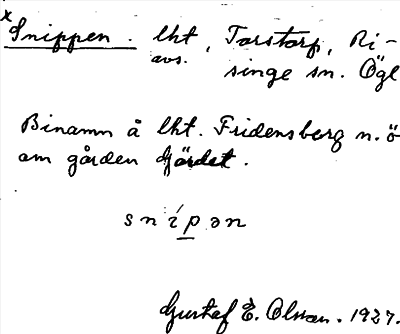 x Snippen. lht, Torstorp, Ri-
avs. singe sn. Ögl
Binamn å lht. Fridensberg n. ö
om gården Gärdet.
s n í p ə n
Gustaf E. Olsson. 1927.